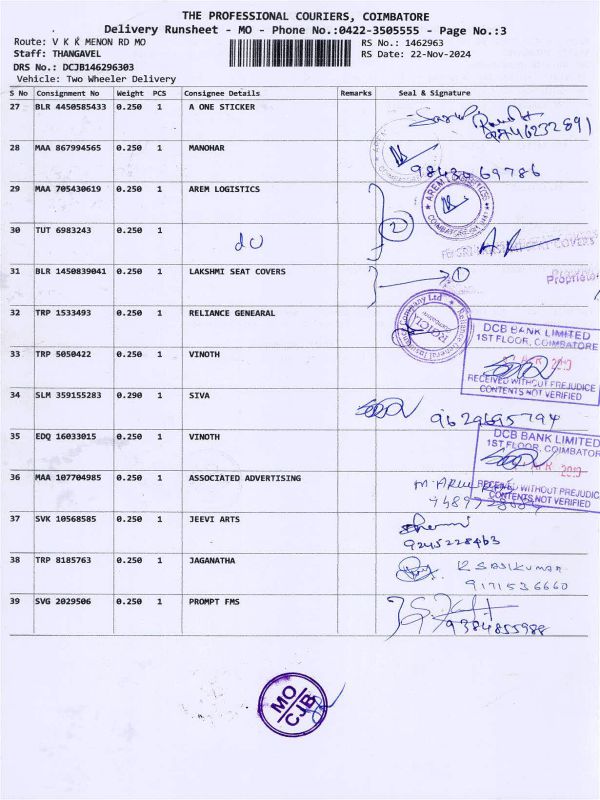 THE PROFESSIONAL COURIERS, COIMBATORE
Delivery Runsheet - MO - Phone No.:0422-3505555 - Page No.:3
Route: V K K MENON RD MO RS No.: 1462963
Staff: THANGAVEL RS Date: 22-Nov-2024
DRS No.: DCJB146296303
Vehicle: Two Wheeler Delivery
S No Consignment No Weight PCS Consignee Details Remarks Seal & Signature
27 BLR 4450585433 0.250 1 A ONE STICKER
28 MAA 867994565 0.250 1 MANOHAR
9843069786
29 MAA 705430619 0.250 1 AREM LOGISTICS
AREM LOGISTICS
30 TUT 6983243 0.250 1
2
31 BLR 1450839041 0.250 1 LAKSHMI SEAT COVERS
1
32 TRP 1533493 0.250 1 RELIANCE GENEARAL
DCB BANK LIMITED
1ST FLOOR, COIMBATORE
33 TRP 5050422 0.250 1 VINOTH
RECEIVED WITHOUT PREJUDICE
CONTENTS NOT VERIFIED
34 SLM 359155283 0.290 1 SIVA
9629695794
35 EDQ 16033015 0.250 1 VINOTH
DCB BANK LIMITED
1ST FLOOR, COIMBATOR
36 MAA 107704985 0.250 1 ASSOCIATED ADVERTISING
RECEIVED WITHOUT PREJUDIC
CONTENTS NOT VERIFIED
37 SVK 10568585 0.250 1 JEEVI ARTS
9245228463
38 TRP 8185763 0.250 1 JAGANATHA
R SASIKUMAR
9171536660
39 SVG 2029506 0.250 1 PROMPT FMS
9384855988
MO
CJB